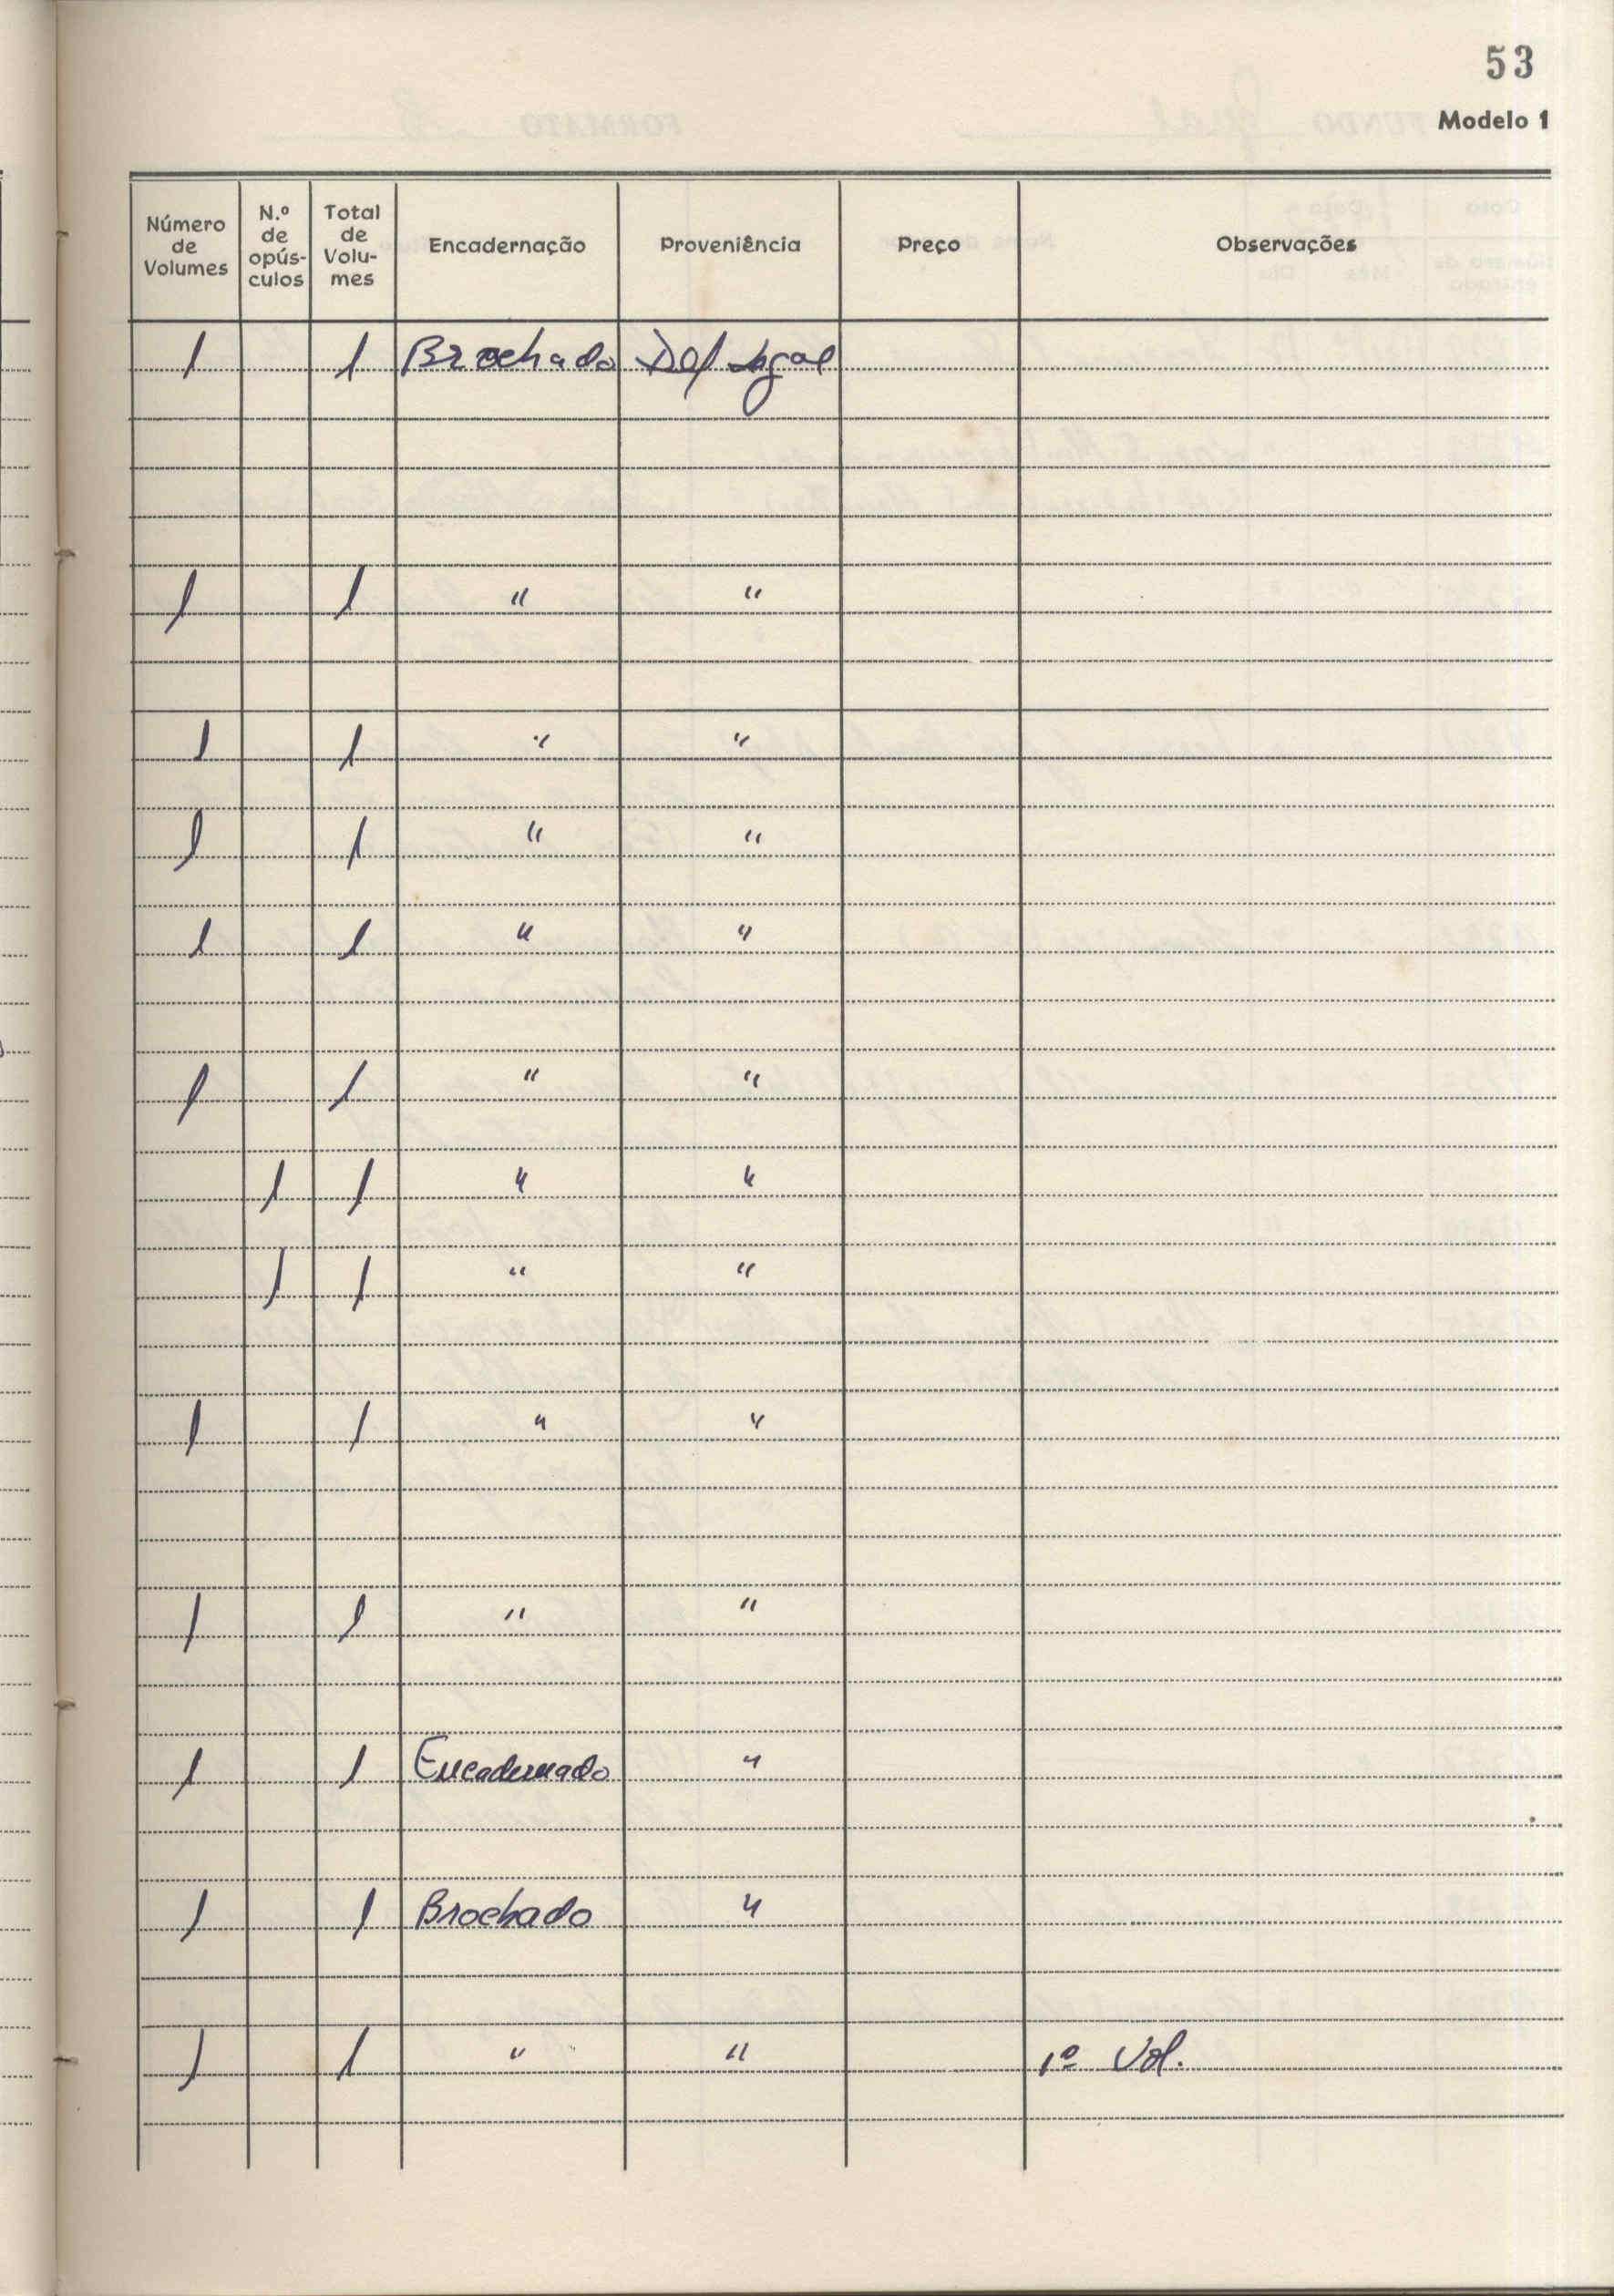 53
Modelo 1
Número de Volumes | N.º de opúsculos | Total de Volumes | Encadernação | Proveniência | Preço | Observações
1 1 Brochado Dep Legal
1 1 " "
1 1 " "
1 1 " "
1 1 " "
1 1 " "
1 1 " "
1 1 " "
1 1 " "
1 1 " "
1 1 Encadernado "
1 1 Brochado "
1 1 " " 1º Vol.